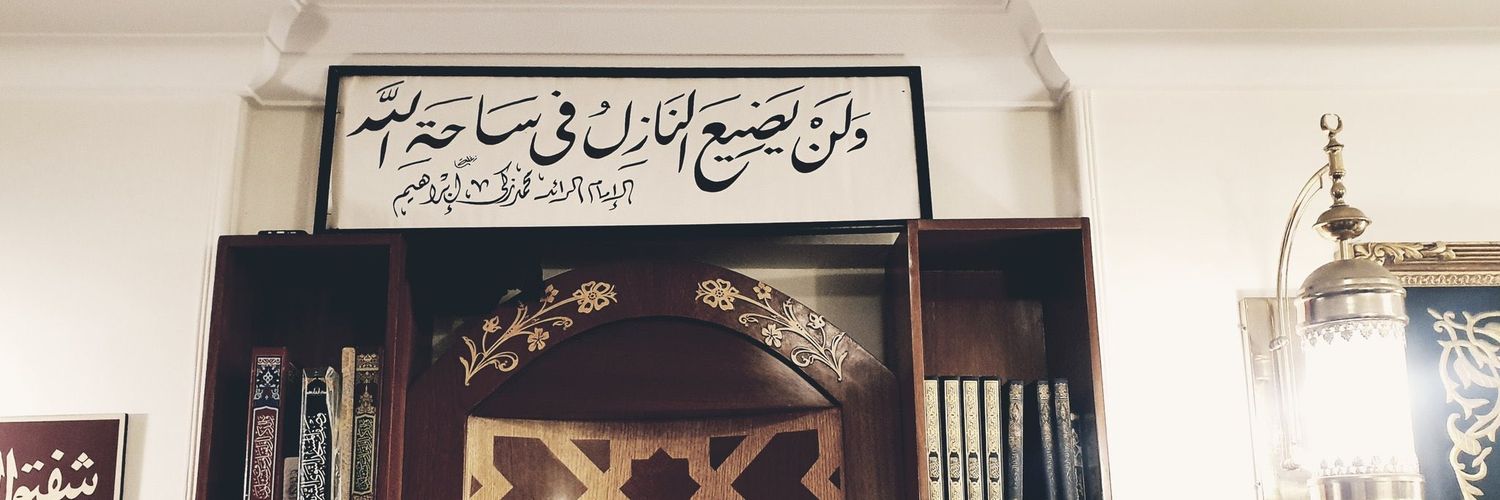 وَلَنْ يَضِيعَ النَازِلُ فِى سَاحَةِ اللَّه
الإمام الرائد محمد زكى إبراهيم